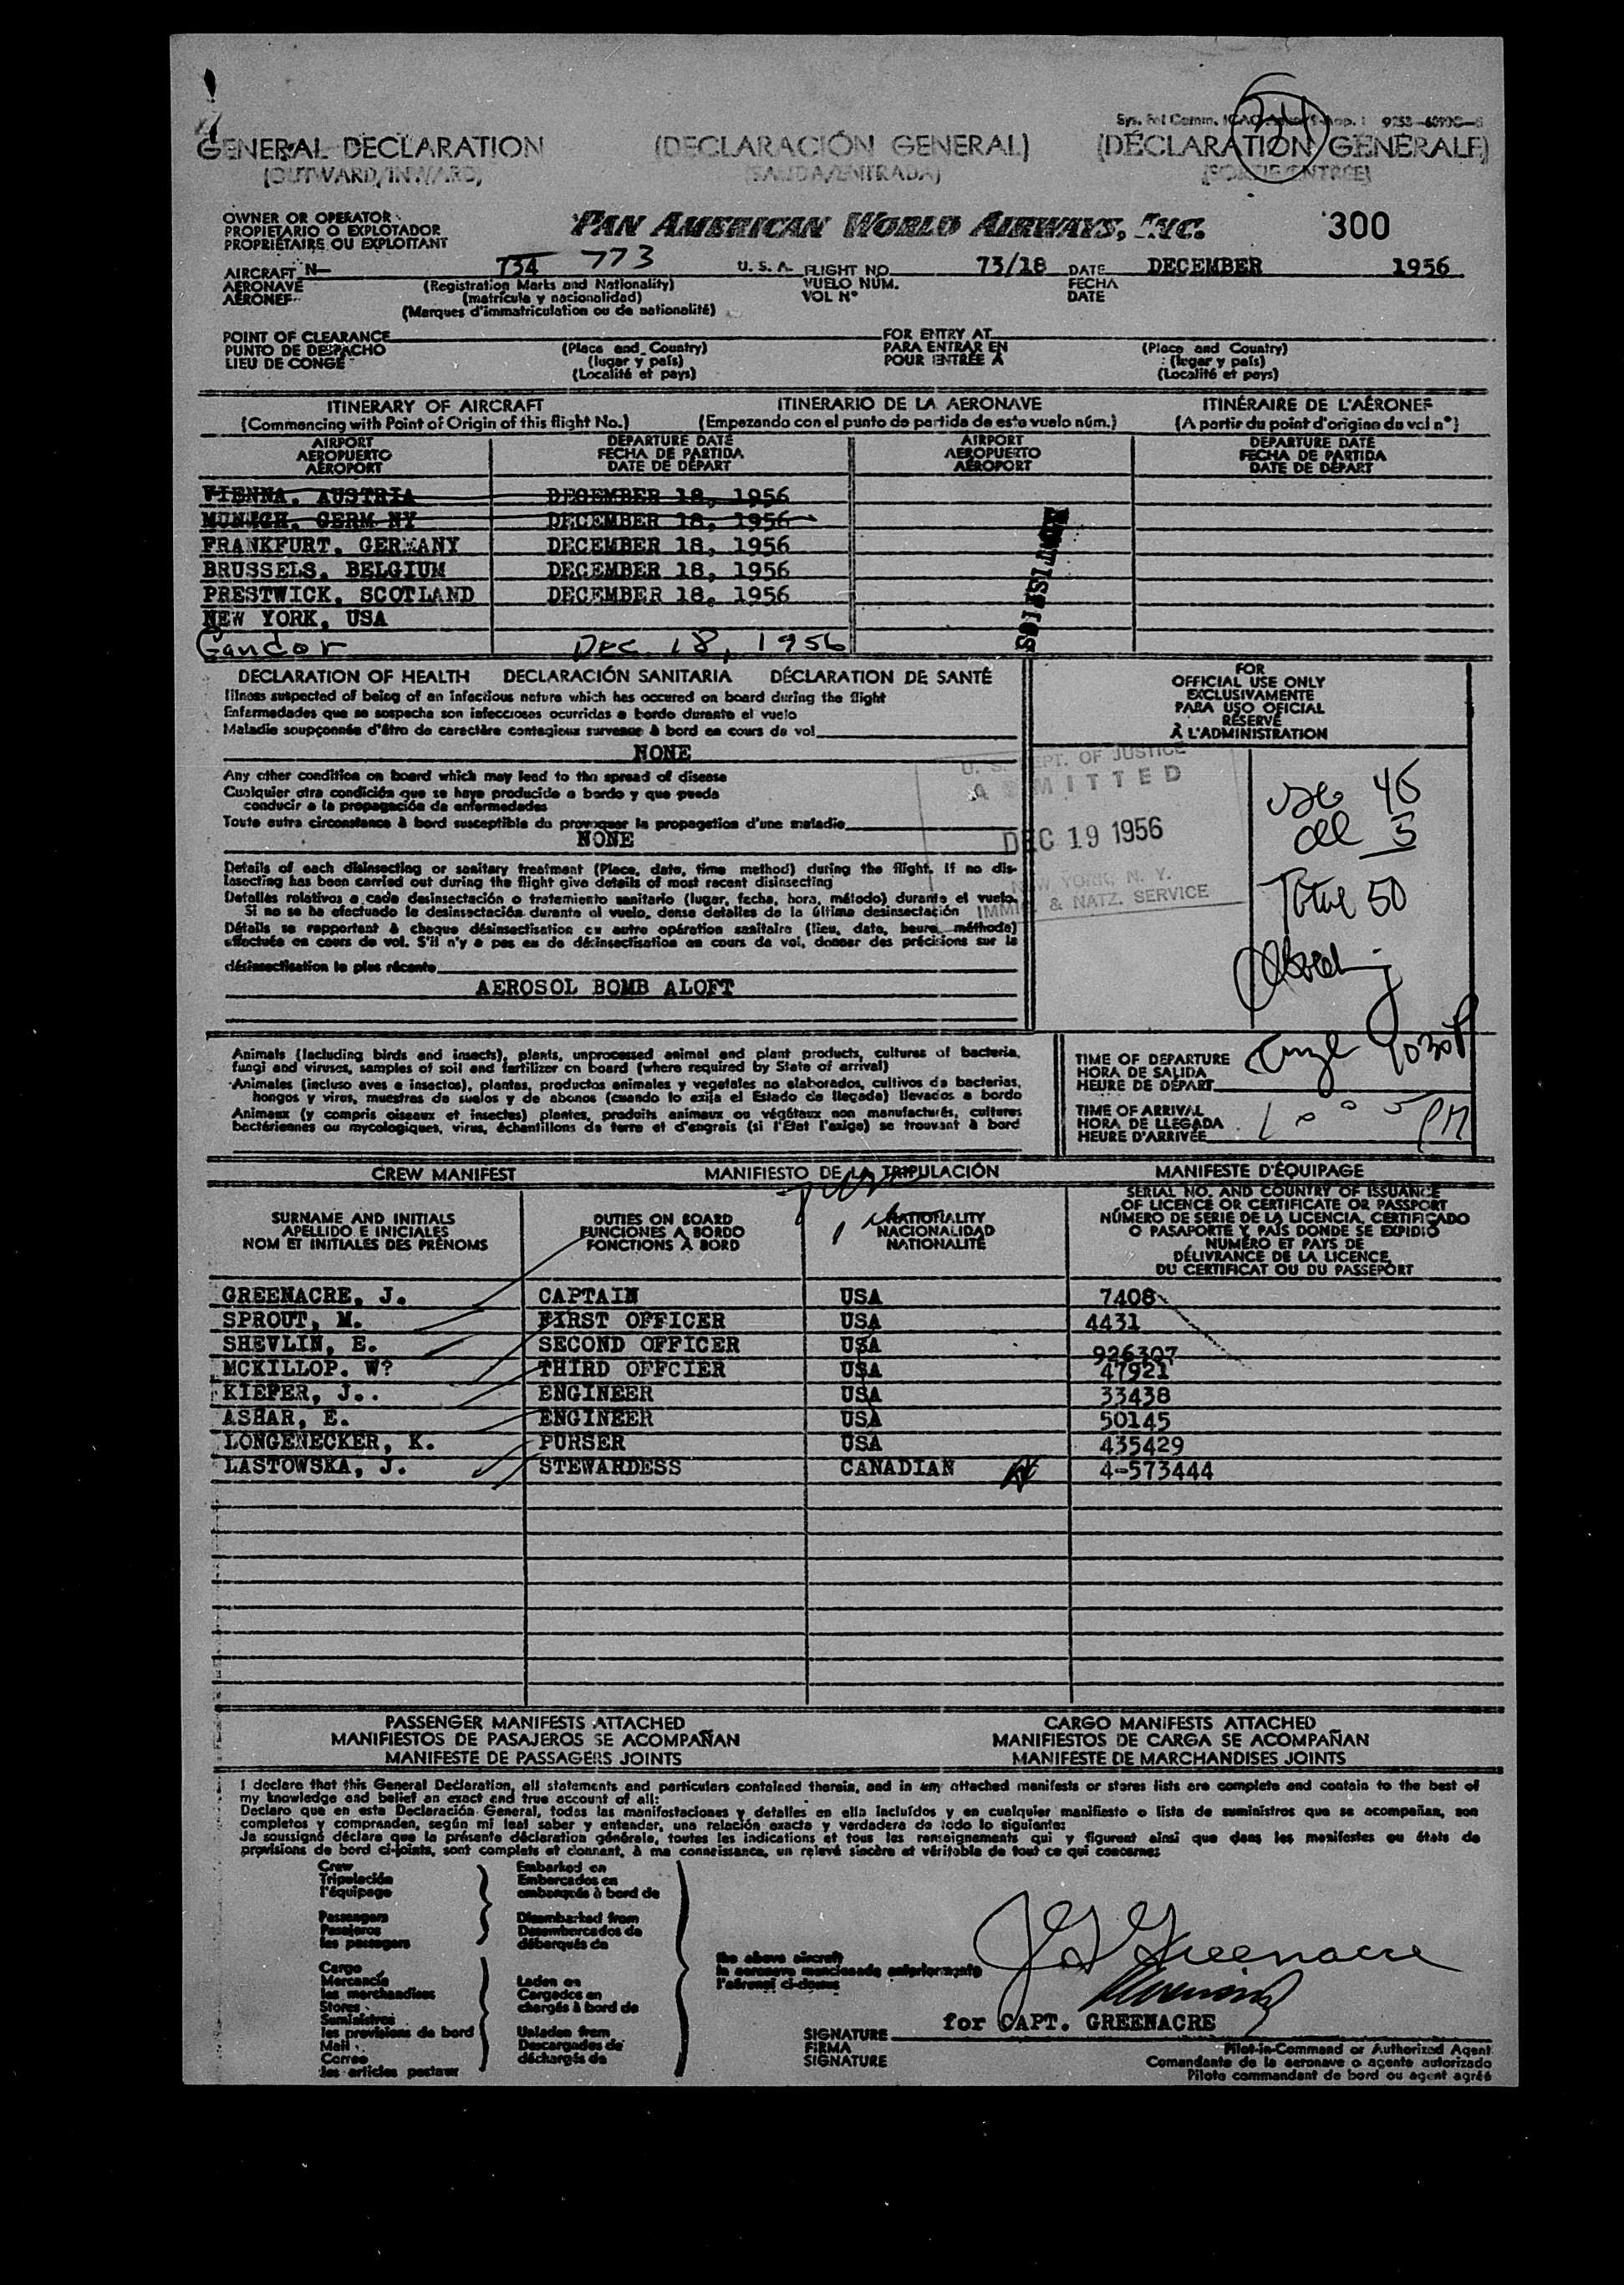 GENERAL DECLARATION (DECLARACIÓN GENERAL) (DÉCLARATION GÉNÉRALE)
(OUTWARD/INWARD) (SALIDA/ENTRADA) (SORTIE/ENTRÉE)
OWNER OR OPERATOR
PROPIETARIO O EXPLOTADOR
PROPRIÉTAIRE OU EXPLOITANT
PAN AMERICAN WORLD AIRWAYS, INC. 300
AIRCRAFT N— 734 773 U. S. A. FLIGHT NO. 73/18 DATE DECEMBER 1956
AERONAVE (Registration Marks and Nationality) VUELO NÚM. FECHA
AÉRONEF (matrícula y nacionalidad) VOL Nº DATE
(Marques d'immatriculation ou de nationalité)
POINT OF CLEARANCE FOR ENTRY AT
PUNTO DE DESPACHO (Place and Country) PARA ENTRAR EN (Place and Country)
LIEU DE CONGÉ (lugar y país) POUR ENTRÉE A (lugar y país)
(Localité et pays) (Localité et pays)
ITINERARY OF AIRCRAFT ITINERARIO DE LA AERONAVE ITINÉRAIRE DE L'AÉRONEF
(Commencing with Point of Origin of this flight No.) (Empezando con el punto de partida de este vuelo núm.) (A partir du point d'origine du vol nº)
AIRPORT DEPARTURE DATE AIRPORT DEPARTURE DATE
AEROPUERTO FECHA DE PARTIDA AEROPUERTO FECHA DE PARTIDA
AÉROPORT DATE DE DÉPART AÉROPORT DATE DE DÉPART
VIENNA, AUSTRIA DECEMBER 18, 1956
MUNICH, GERM NY DECEMBER 18, 1956
FRANKFURT, GERMANY DECEMBER 18, 1956
BRUSSELS, BELGIUM DECEMBER 18, 1956
PRESTWICK, SCOTLAND DECEMBER 18, 1956
NEW YORK, USA
Gander DEC 18, 1956
DECLARATION OF HEALTH DECLARACIÓN SANITARIA DÉCLARATION DE SANTÉ
Illness suspected of being of an infectious nature which has occured on board during the flight
Enfermedades que se sospecha son infecciosas ocurridas a bordo durante el vuelo
Maladie soupçonnée d'être de caractère contagieux survenue à bord en cours de vol
NONE
Any other condition on board which may lead to the spread of disease
Cualquier otra condición que se haya producido a bordo y que pueda
conducir a la propagación de enfermedades
Toute autre circonstance à bord susceptible du provoquer la propagation d'une maladie
NONE
Details of each disinsecting or sanitary treatment (Place, date, time method) during the flight. If no dis-
insecting has been carried out during the flight give details of most recent disinsecting
Detalles relativos a cada desinsectación o tratamiento sanitario (lugar, fecha, hora, método) durante el vuelo.
Si no se ha efectuado la desinsectación durante el vuelo, dense detalles de la última desinsectación
Détails se rapportant à chaque désinsectisation ou autre opération sanitaire (lieu, date, heure, méthode)
effectuée en cours de vol. S'il n'y a pas eu de désinsectisation en cours de vol, donner des précisions sur la
désinsectisation la plus récente
AEROSOL BOMB ALOFT
FOR
OFFICIAL USE ONLY
EXCLUSIVAMENTE
PARA USO OFICIAL
RÉSERVÉ
À L'ADMINISTRATION
U. S. DEPT. OF JUSTICE
ADMITTED
DEC 19 1956
NEW YORK, N. Y.
IMMI & NATZ. SERVICE
45
5
Total 50
Animals (including birds and insects), plants, unprocessed animal and plant products, cultures of bacteria,
fungi and viruses, samples of soil and fertilizer on board (where required by State of arrival)
Animales (incluso aves e insectos), plantas, productos animales y vegetales no elaborados, cultivos de bacterias,
hongos y virus, muestras de suelos y de abonos (cuando lo exija el Estado de llegada) llevados a bordo
Animaux (y compris oiseaux et insectes) plantes, produits animaux ou végétaux non manufacturés, cultures
bactériennes ou mycologiques, virus, échantillons de terre et d'engrais (si l'Etat l'exige) se trouvant à bord
TIME OF DEPARTURE
HORA DE SALIDA
HEURE DE DÉPART
TIME OF ARRIVAL
HORA DE LLEGADA
HEURE D'ARRIVÉE
1005 PM
CREW MANIFEST MANIFIESTO DE LA TRIPULACIÓN MANIFESTE D'ÉQUIPAGE
SURNAME AND INITIALS
APELLIDO E INICIALES
NOM ET INITIALES DES PRÉNOMS
DUTIES ON BOARD
FUNCIONES A BORDO
FONCTIONS À BORD
NATIONALITY
NACIONALIDAD
NATIONALITÉ
SERIAL NO. AND COUNTRY OF ISSUANCE
OF LICENCE OR CERTIFICATE OR PASSPORT
NÚMERO DE SERIE DE LA LICENCIA, CERTIFICADO
O PASAPORTE Y PAÍS DONDE SE EXPIDIÓ
NUMÉRO ET PAYS DE
DÉLIVRANCE DE LA LICENCE,
DU CERTIFICAT OU DU PASSEPORT
GREENACRE, J. CAPTAIN USA 7408
SPROUT, M. FIRST OFFICER USA 4431
SHEVLIN, E. SECOND OFFICER USA 926307
MCKILLOP. W? THIRD OFFCIER USA 47921
KIEFER, J.. ENGINEER USA 33438
ASHAR, E. ENGINEER USA 50145
LONGENECKER, K. PURSER USA 435429
LASTOWSKA, J. STEWARDESS CANADIAN 4-573444
PASSENGER MANIFESTS ATTACHED CARGO MANIFESTS ATTACHED
MANIFIESTOS DE PASAJEROS SE ACOMPAÑAN MANIFIESTOS DE CARGA SE ACOMPAÑAN
MANIFESTE DE PASSAGERS JOINTS MANIFESTE DE MARCHANDISES JOINTS
I declare that this General Declaration, all statements and particulars contained therein, and in any attached manifests or stores lists are complete and contain to the best of
my knowledge and belief an exact and true account of all:
Declaro que en esta Declaración General, todas las manifestaciones y detalles en ella incluídos y en cualquier manifiesto o lista de suministros que se acompañan, son
completos y comprenden, según mi leal saber y entender, una relación exacta y verdadera de todo lo siguiente:
Je soussigné déclare que la présente déclaration générale, toutes les indications et tous les renseignements qui y figurent ainsi que dans les manifestes ou états de
provisions de bord ci-joints, sont complets et donnant, à ma connaissance, un relevé sincère et véritable de tout ce qui concerne:
Crew
Tripulación
l'équipage
Passengers
Pasajeros
les passagers
Cargo
Mercancía
les marchandises
Stores
Suministros
les provisions de bord
Mail
Correo
les articles postaux
Embarked on
Embarcados en
embarqués à bord de
Disembarked from
Desembarcados de
débarqués de
Laden on
Cargados en
chargés à bord de
Unladen from
Descargados de
déchargés de
the above aircraft
la aeronave mencionada anteriormente
l'aéronef ci-dessus
J G Greenacre
for CAPT. GREENACRE
SIGNATURE
FIRMA
SIGNATURE
Pilot-in-Command or Authorized Agent
Comandante de la aeronave o agente autorizado
Pilote commandant de bord ou agent agréé